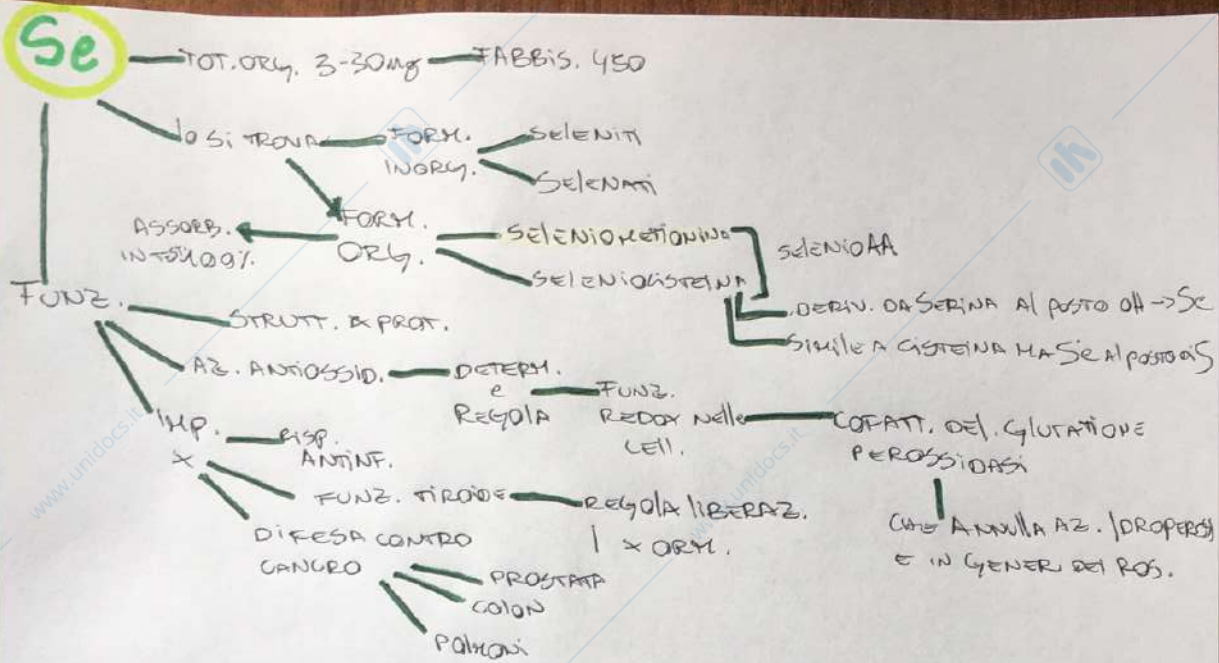 Se
TOT. ORG. 3-30mg FABBIS. 450
lo Si TROVA
FORM.
INORG.
SELENITI
SELENATI
FORM.
ORG.
ASSORB.
SELENIOMETIONINA
SELENIOCISTEINA
SELENIOAA
DERIV. DA SERINA Al POSTO OH -> Se
SIMILE A CISTEINA MA Se Al POSTO di S
FUNZ.
STRUTT. x PROT.
AZ. ANTIOSSID.
DETERM.
e
REGOLA
FUNZ.
REDOX Nelle
CELL.
COFATT. DEL GLUTATIONE
PEROSSIDASI
CHE ANNULLA AZ. IDROPEROSSI
E IN GENER DEI ROS.
IMP.
x
RISP.
ANTINF.
FUNZ. TIROIDE
REGOLA LIBERAZ.
I x ORM.
DIFESA CONTRO
CANCRO
PROSTATA
COLON
POLMONI
www.unidocs.it
www.unidocs.it